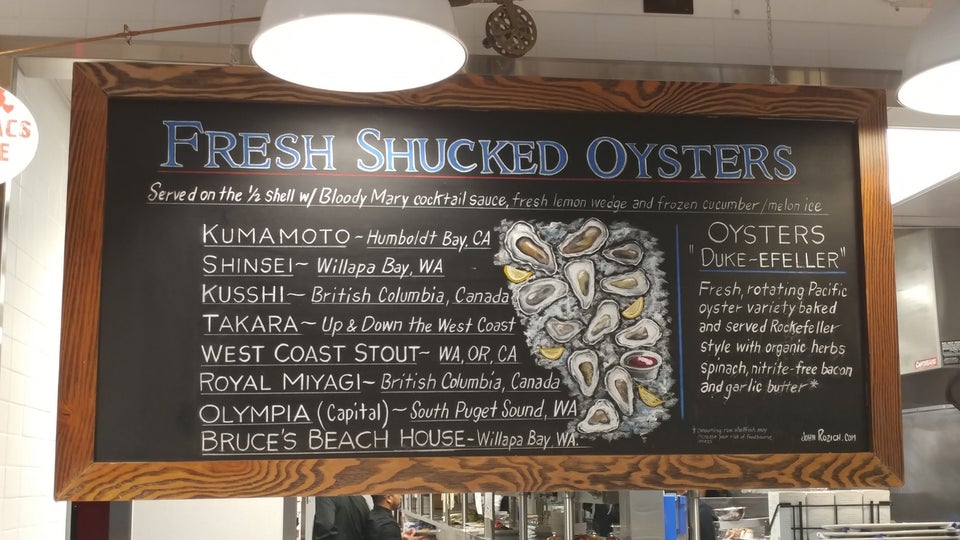 FRESH SHUCKED OYSTERS
Served on the ½ shell w/ Bloody Mary cocktail sauce, fresh lemon wedge and frozen cucumber/melon ice
KUMAMOTO ~ Humboldt Bay, CA
SHINSEI ~ Willapa Bay, WA
KUSSHI ~ British Columbia, Canada
TAKARA ~ Up & Down the West Coast
WEST COAST STOUT ~ WA, OR, CA
ROYAL MIYAGI ~ British Columbia, Canada
OLYMPIA (Capital) ~ South Puget Sound, WA
BRUCE'S BEACH HOUSE - Willapa Bay, WA.
OYSTERS
"DUKE-EFELLER"
Fresh, rotating Pacific
oyster variety baked
and served Rockefeller
style with organic herbs
spinach, nitrite-free bacon
and garlic butter*
* consuming raw shellfish may
increase your risk of foodborne
JOHN ROZICH.COM